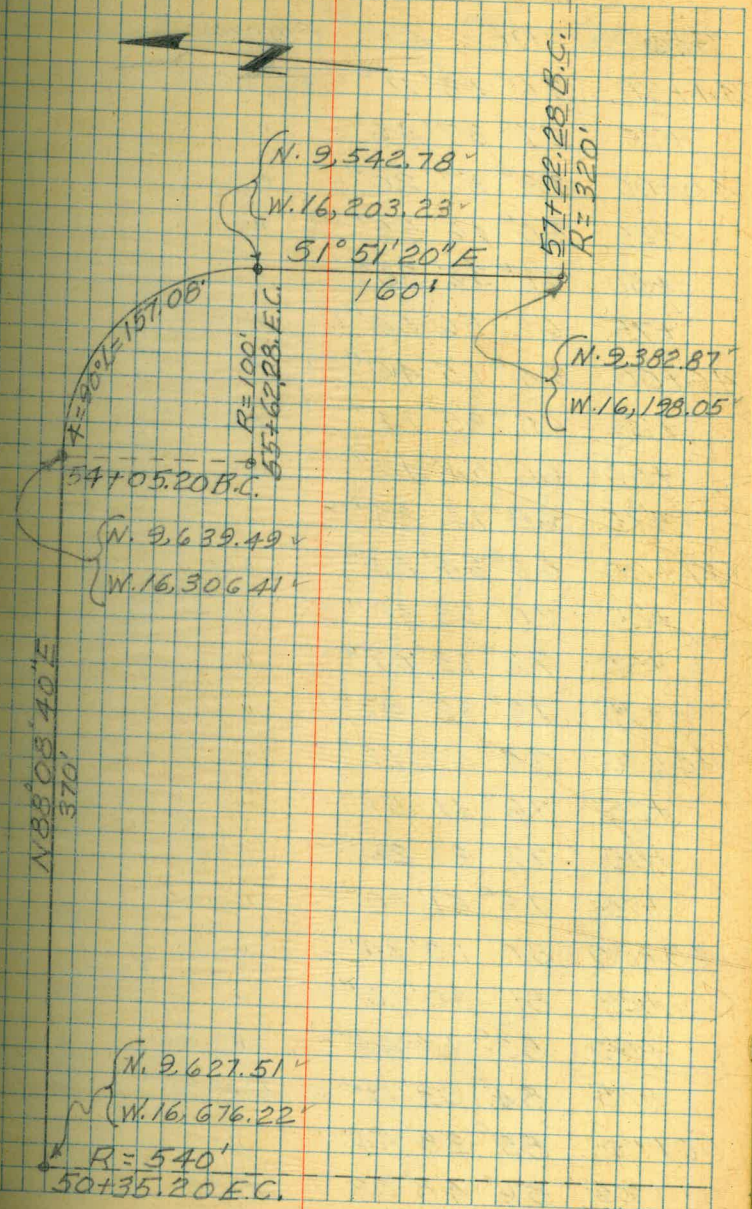 N
57+22.28 B.C.
R=320'
N. 9,542.78
W. 16,203.23
S1°51'20"E
160'
N. 9,382.87
W. 16,198.05
∡=90° L=157.08'
R=100'
55+62.28 E.C.
54+05.20 B.C.
N. 9,639.49
W. 16,306.41
N88°08'40"E
370'
N. 9,627.51
W. 16,676.22
R=540'
50+35.20 E.C.